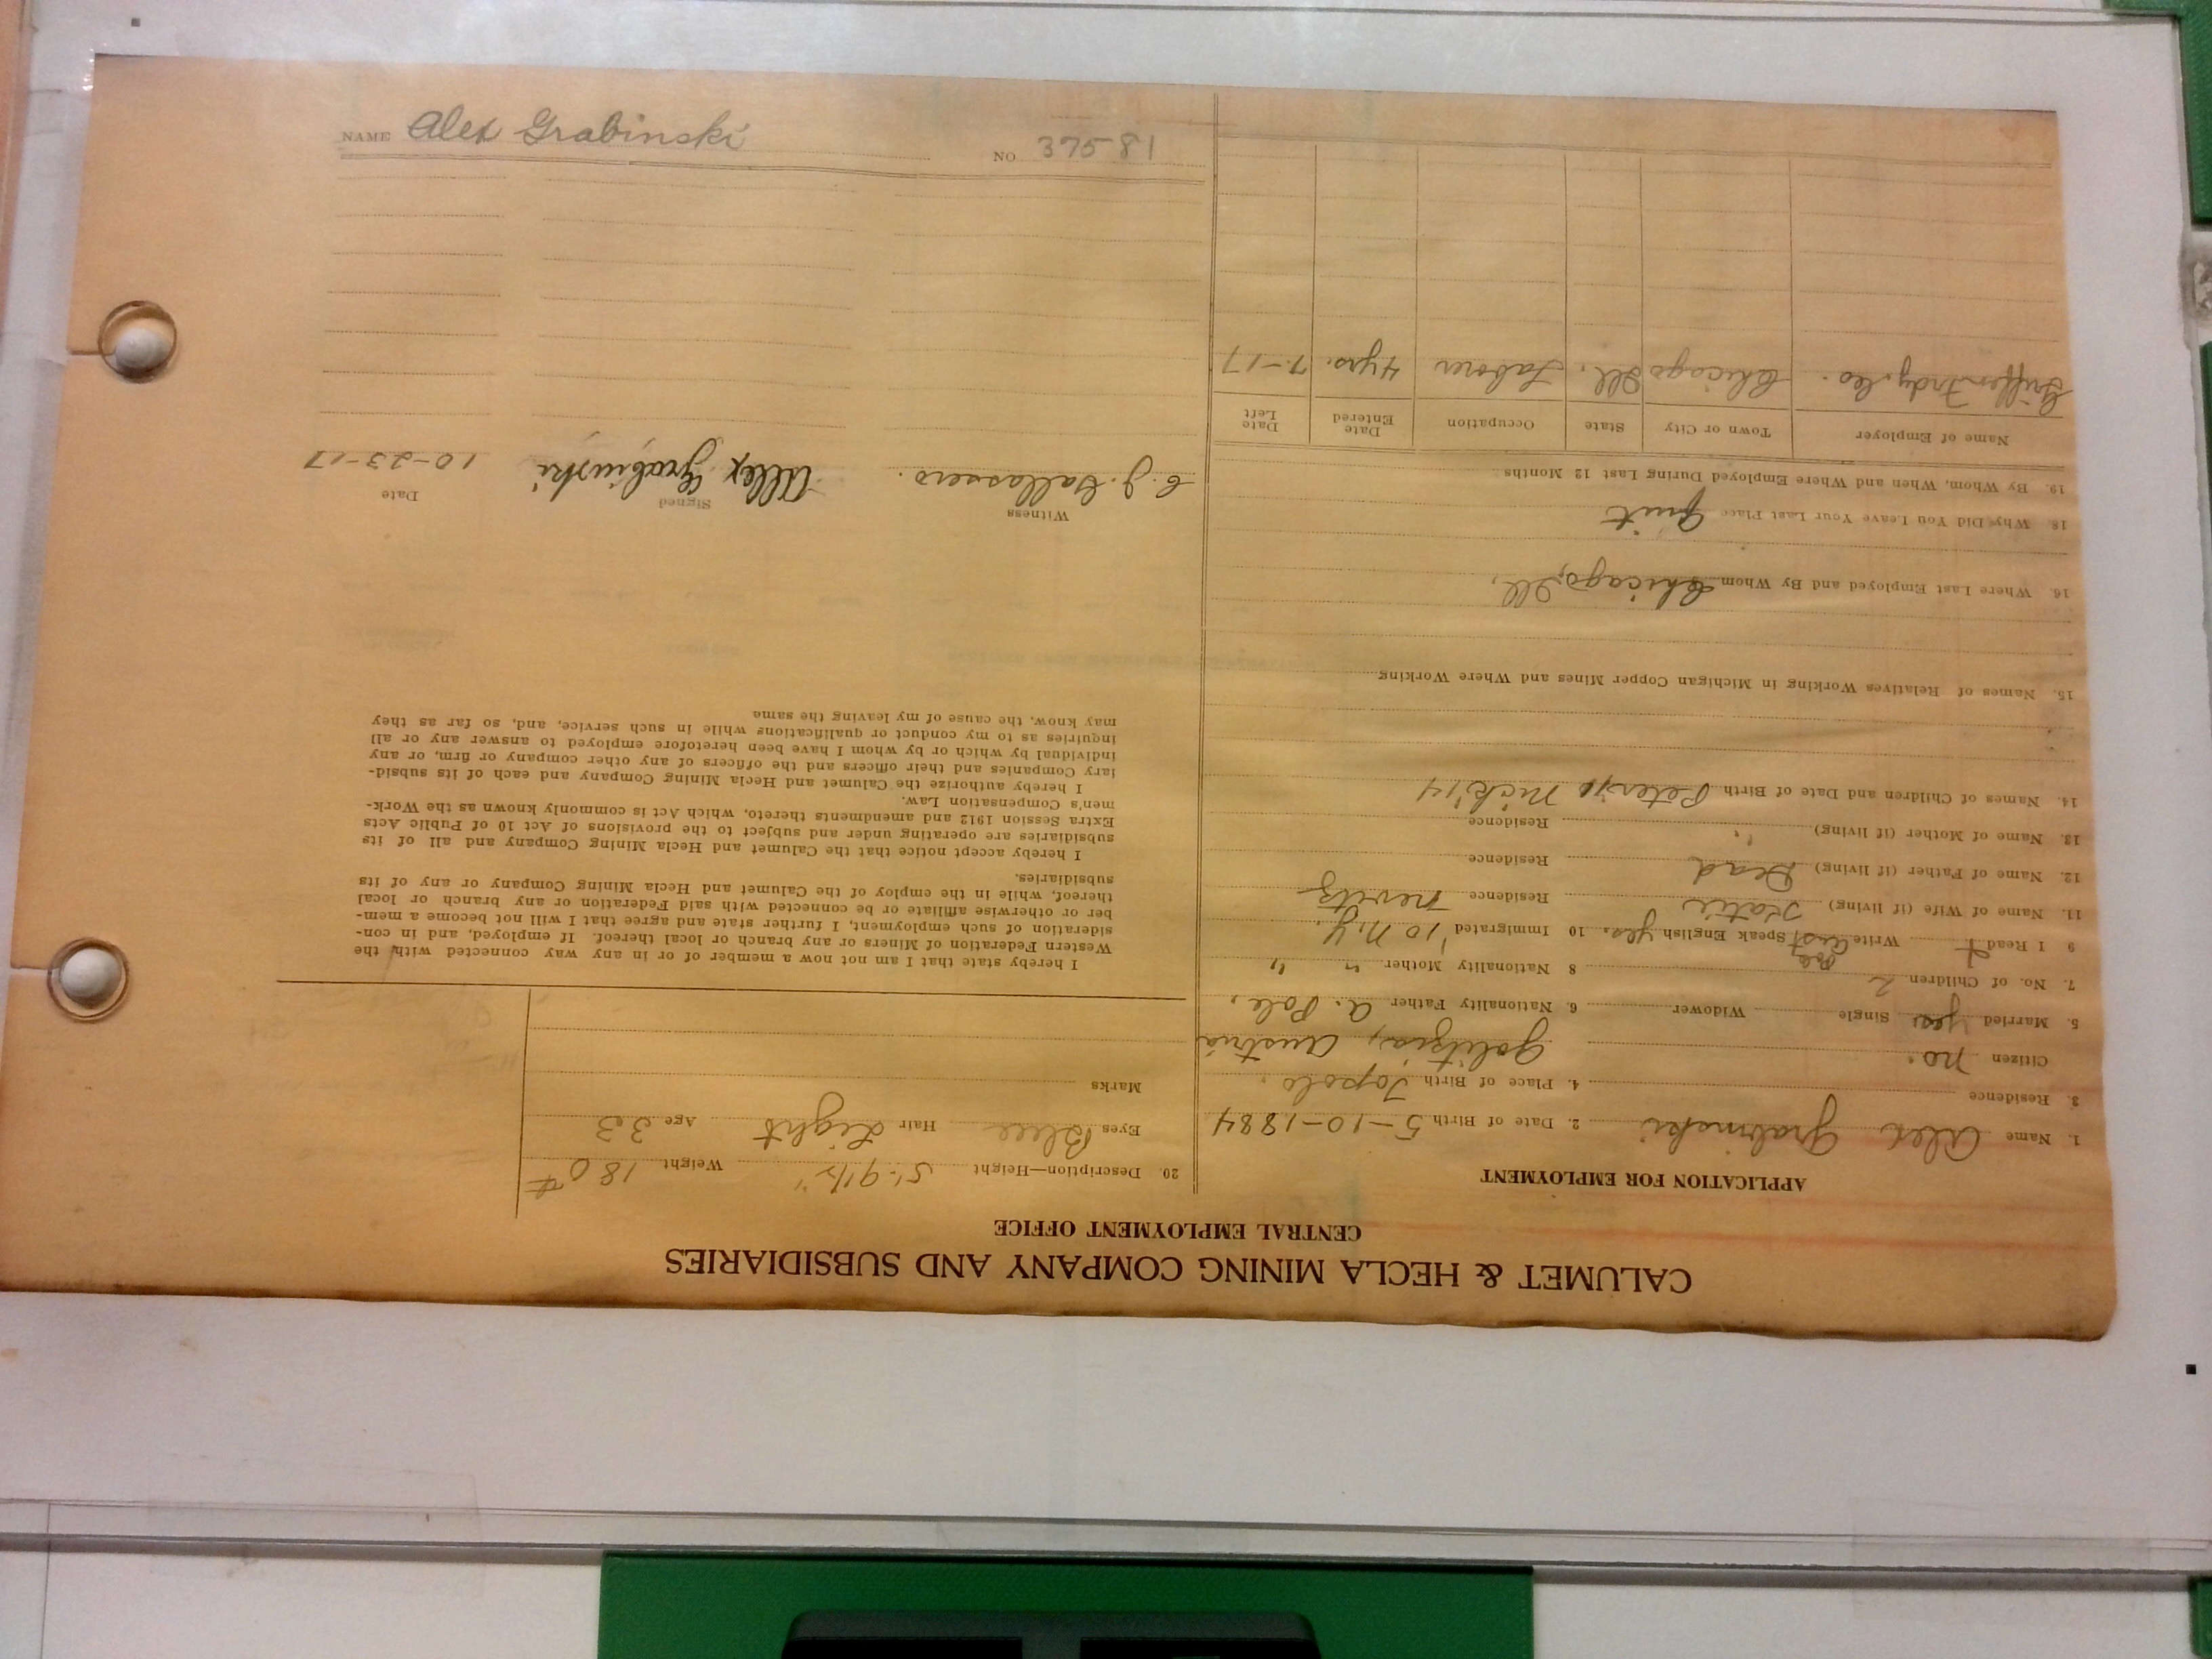 CALUMET & HECLA MINING COMPANY AND SUBSIDIARIES
CENTRAL EMPLOYMENT OFFICE
APPLICATION FOR EMPLOYMENT
1. Name Alex Grabinski 2. Date of Birth 5-10-1884
3. Residence 4. Place of Birth Topolo.
Citizen no. Galitzia, Austria
5. Married yes Single Widower 6. Nationality Father a. Pole,
7. No. of Children 2 8 Nationality Mother " "
9 I Read Write Aust. Pole Speak English yes. 10 Immigrated '10 N.Y.
11. Name of Wife (if living) Katie Residence
12. Name of Father (if living) Dead Residence
13. Name of Mother (if living) " Residence
14. Names of Children and Date of Birth Peter '10 Nick '14
15. Names of Relatives Working in Michigan Copper Mines and Where Working
16. Where Last Employed and By Whom Chicago, Ill.
18. Why Did You Leave Your Last Place Quit
19. By Whom, When and Where Employed During Last 12 Months
Name of Employer Town or City State Occupation Date Entered Date Left
Griffen Fndy. Co. Chicago Ill. Laborer 4 yrs. 7-17
20. Description—Height 5'-9½" Weight 180#
Eyes Blue Hair Light Age 33
Marks
I hereby state that I am not now a member of or in any way connected with the
Western Federation of Miners or any branch or local thereof. If employed, and in con-
sideration of such employment, I further state and agree that I will not become a mem-
ber or otherwise affiliate or be connected with said Federation or any branch or local
thereof, while in the employ of the Calumet and Hecla Mining Company or any of its
subsidiaries.
I hereby accept notice that the Calumet and Hecla Mining Company and all of its
subsidiaries are operating under and subject to the provisions of Act 10 of Public Acts
Extra Session 1912 and amendments thereto, which Act is commonly known as the Work-
men's Compensation Law.
I hereby authorize the Calumet and Hecla Mining Company and each of its subsid-
iary Companies and their officers and the officers of any other company or firm, or any
individual by which or by whom I have been heretofore employed to answer any or all
inquiries as to my conduct or qualifications while in such service, and, so far as they
may know, the cause of my leaving the same
Witness Signed Date
Allex Grabinski 10-23-17
NAME Alex Grabinski NO 37581